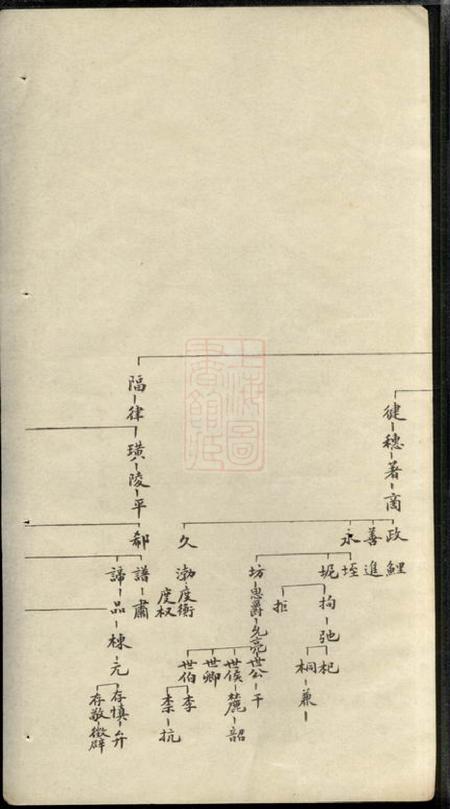 健穗著商
政鯉
善進
永
垤
坭
拘弛
杞
桐兼
拒
坊
思爵允亮
世公干
世侯麓韶
世卿
世伯
李
李抗
久
渤
度衡
度权
隔律璜陵平
郗
譜肅
諦品棟元
存慎弁
存敬徵辟